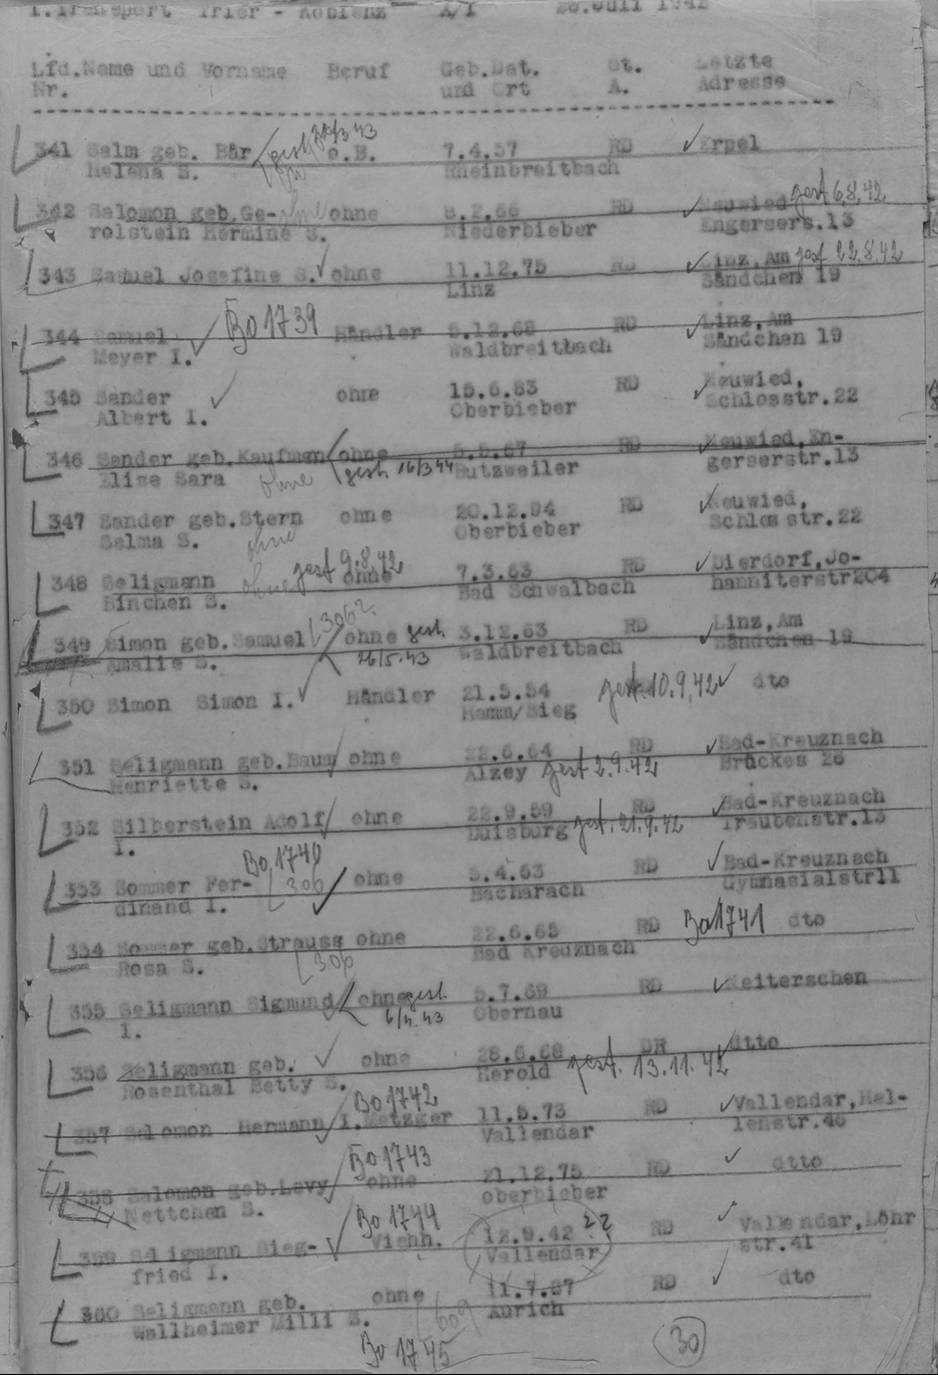 I.Transport Trier - Koblenz X/1 26.Juli 1942
Lfd.Name und Vorname Beruf Geb.Dat. St. Letzte
Nr. und Ort A. Adresse
341 Salm geb. Bär gest. o.B. 7.4.57 RD Erpel
Helena S. Rheinbreitbach
342 Salomon geb.Ge- ohne ohne 8.2.66 RD Neuwied gest 6.8.42
rolstein Hermine S. Niederbieber Engersers.13
343 Samuel Josefine S. ohne 11.12.75 RD Linz,Am gest 22.8.42
Linz Sändchen 19
344 Samuel Bo 1739 Händler 5.12.68 RD Linz,Am
Meyer I. Waldbreitbach Sändchen 19
345 Sander ohne 15.6.83 RD Neuwied,
Albert I. Oberbieber Schlosstr.22
346 Sander geb.Kaufman ohne 5.5.67 RD Neuwied,En-
Elise Sara ohne gest. 16/3 44 Butzweiler gerserstr.13
347 Sander geb.Stern ohne 20.12.94 RD Neuwied,
Selma S. ohne Oberbieber Schlosstr.22
348 Seligmann ohne gest 9.8.42 ohne 7.3.63 RD Dierdorf,Jo-
Binchen S. Bad Schwalbach hanniterstr204
349 Simon geb.Samuel L306 ohne gest. 3.12.63 RD Linz,Am
Amalie S. 26/5.43 Waldbreitbach Sändchen 19
350 Simon Simon I. Händler 21.5.54 gest. 10.9.42 dto
Hamm/Sieg
351 Seligmann geb.Baum ohne 22.6.64 RD Bad-Kreuznach
Henriette S. Alzey gest 2.9.42 Brückes 26
352 Silberstein Adolf ohne 22.9.59 RD Bad-Kreuznach
I. Duisburg gest. 21.9.42 Traubenstr.13
Bo 1740
353 Sommer Fer- L306 ohne 5.4.63 RD Bad-Kreuznach
dinand I. Bacharach Gymnasialstr11
354 Sommer geb.Strauss ohne 22.6.65 RD Bo 1741 dto
Rosa S. L306 Bad Kreuznach
355 Seligmann Sigmund ohne gest. 5.7.69 RD Meiterschen
I. Obernau
356 Seligmann geb. ohne 28.6.68 DR dtto
Rosenthal Betty S. Herold gest. 13.11.42
Bo 1742
357 Salomon Hermann I. Metzger 11.5.73 RD Vallendar,Hel-
Vallendar lenstr.46
Bo 1743
358 Salomon geb.Levy ohne 21.12.75 RD dtto
Nettchen S. oberbieber
Bo 1744
359 Seligmann Sieg- Viehh. 12.9.42 ?? RD Vallendar,Löhr
fried I. Vallendar str.41
360 Seligmann geb. ohne 11.7.87 RD dto
Wallheimer Milli S. Aurich
Bo 1745 30